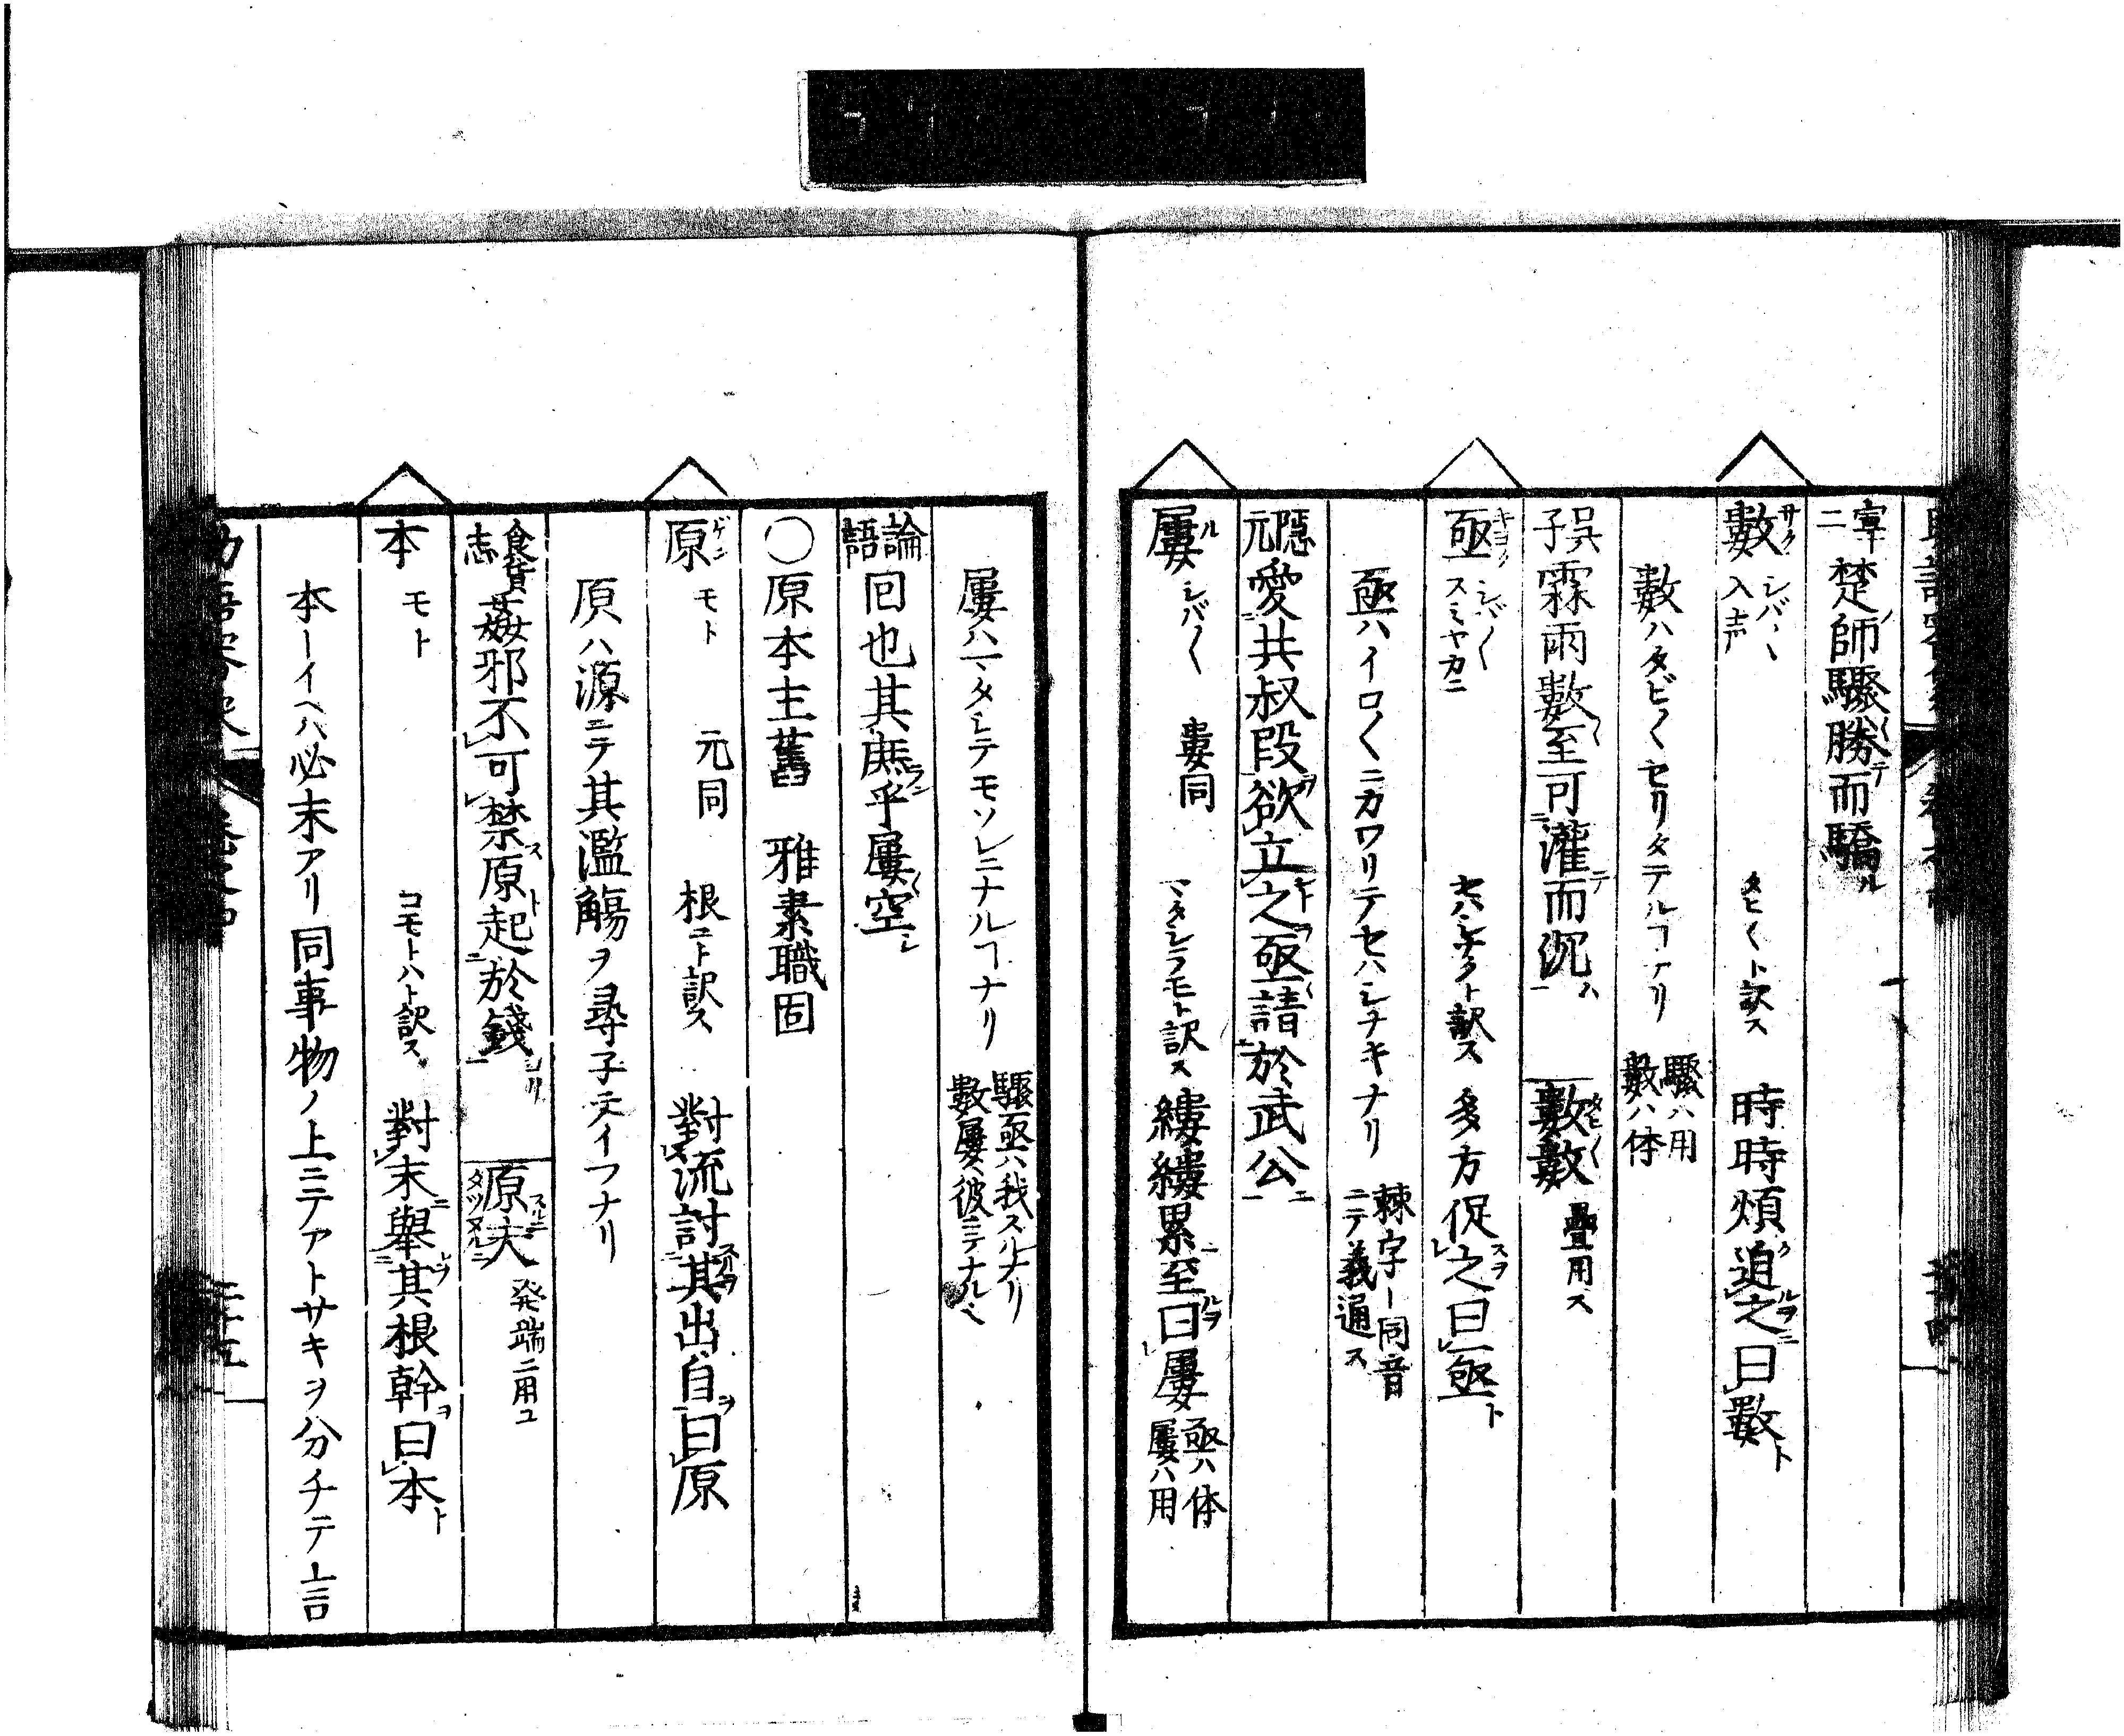 宣二 楚ノ師驟〱勝テ而驕ル
數 サク シバ〱 入声 タビ〱ト訳ス 時時煩ク迫ルヲ之ニ曰數ト
數ハタビ〱セリタテルヿナリ 驟ハ用 數ハ体
呉子 霖雨數〱至可灌テ而沉ハ 數數 タビ〱 疊用ス
亟 キヨク シバ〱 スミヤカニ セハシナクト訳ス 多方促スヲ之曰亟ト
亟ハイロ〱ニカワリテセハシナキナリ 棘字ー同音ニテ義通ス
隠元 愛共叔段ヲ欲立ント之ヲ亟〱請於武公ニ
屢 ル シバ〱 婁同 一タシテモト訳ス 縷縷累ニ至ルヲ曰屢 亟ハ体 屢ハ用
屢ハ一タシテモソレニナルヿナリ 驟亟ハ我スルナリ 數屢ハ彼ニテナル
論語 回也其庶ラン乎屢〱空シ
〇原本主舊 雅素職固
原 ゲン モト 元同 根コト訳ス 對流ニ討スルヲ其出自ヲ曰原
原ハ源ニテ其濫觴ヲ尋子テイフナリ
食貨志 姦邪不可禁ス原ト起ニ於錢ヨリ 原夫 スルニ タヅヌルニ 発端ニ用ユ
本 モト コモトハト訳ス 對末ニ舉其根幹ヲ曰本ト
本ーイヘハ必末アリ同事物ノ上ニテアトサキヲ分チテ言